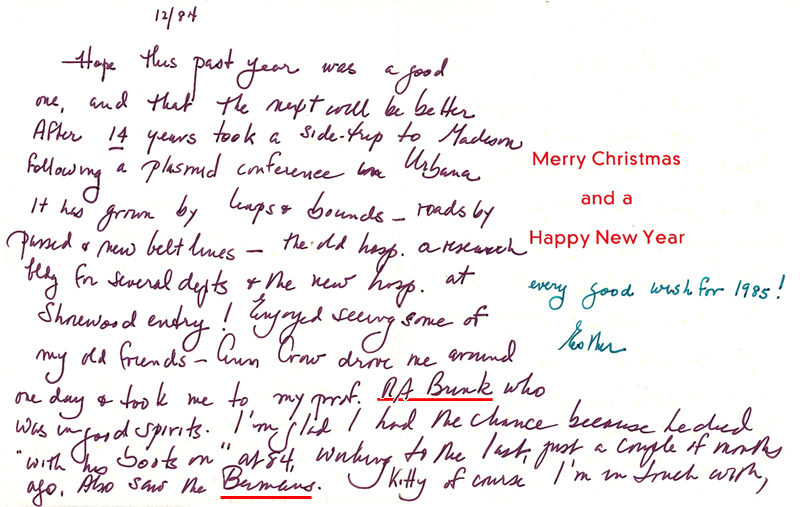 12/84
Hope this past year was a good
one, and that the next will be better
After 14 years took a side-trip to Madison
following a plasmid conference in Urbana
It has grown by leaps & bounds – roads by
passed & new belt lines – the old hosp. a research
bldg for several depts & the new hosp. at
Shorewood entry! Enjoyed seeing some of
my old friends – Ann Crow drove me around
one day & took me to my prof. RA Brink who
was in good spirits. I'm glad I had the chance because he died
"with his boots on" at 84, working to the last, just a couple of months
ago. Also saw the Bermans. Kitty of course I'm in touch with,
Merry Christmas
and a
Happy New Year
every good wish for 1985!
Esther